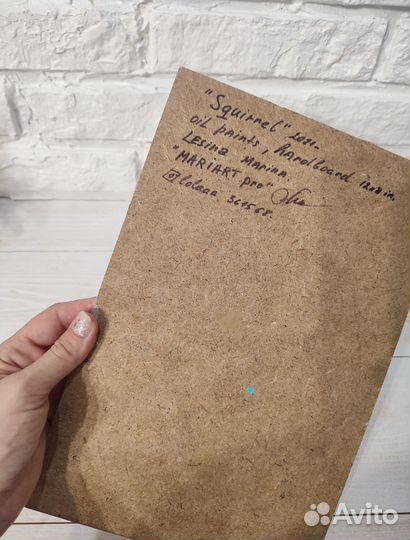 "Squirrel" 2021.
oil paints, hardboard 12x8 in.
Lesina Marina.
"MARIART pro"
lolaaa 361568.
Avito